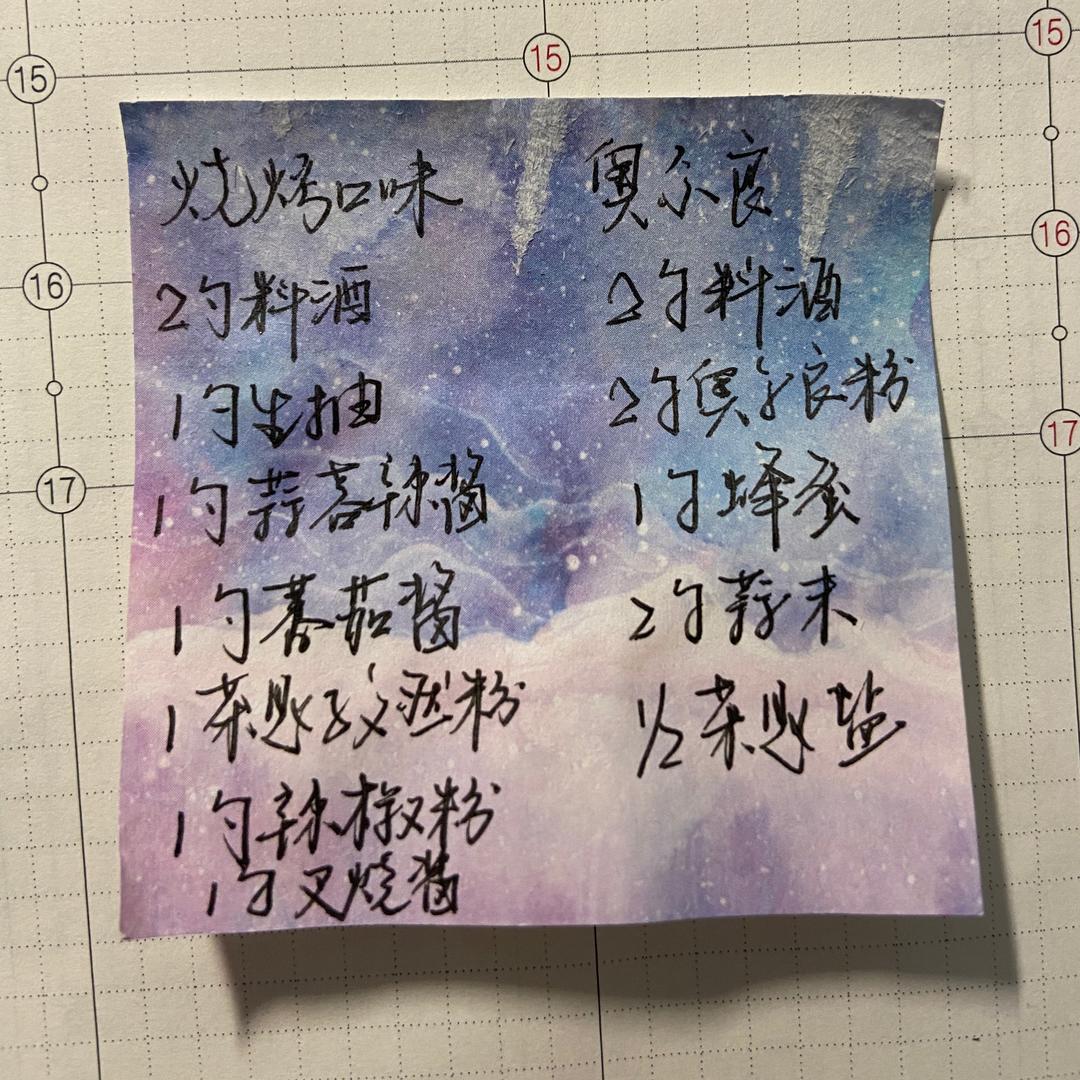 15
15
15
16
16
17
17
烧烤口味
2勺料酒
1勺生抽
1勺蒜蓉辣酱
1勺蕃茄酱
1茶匙孜然粉
1勺辣椒粉
1勺叉烧酱
奥尔良
2勺料酒
2勺奥尔良粉
1勺蜂蜜
2勺蒜末
1/2茶匙盐